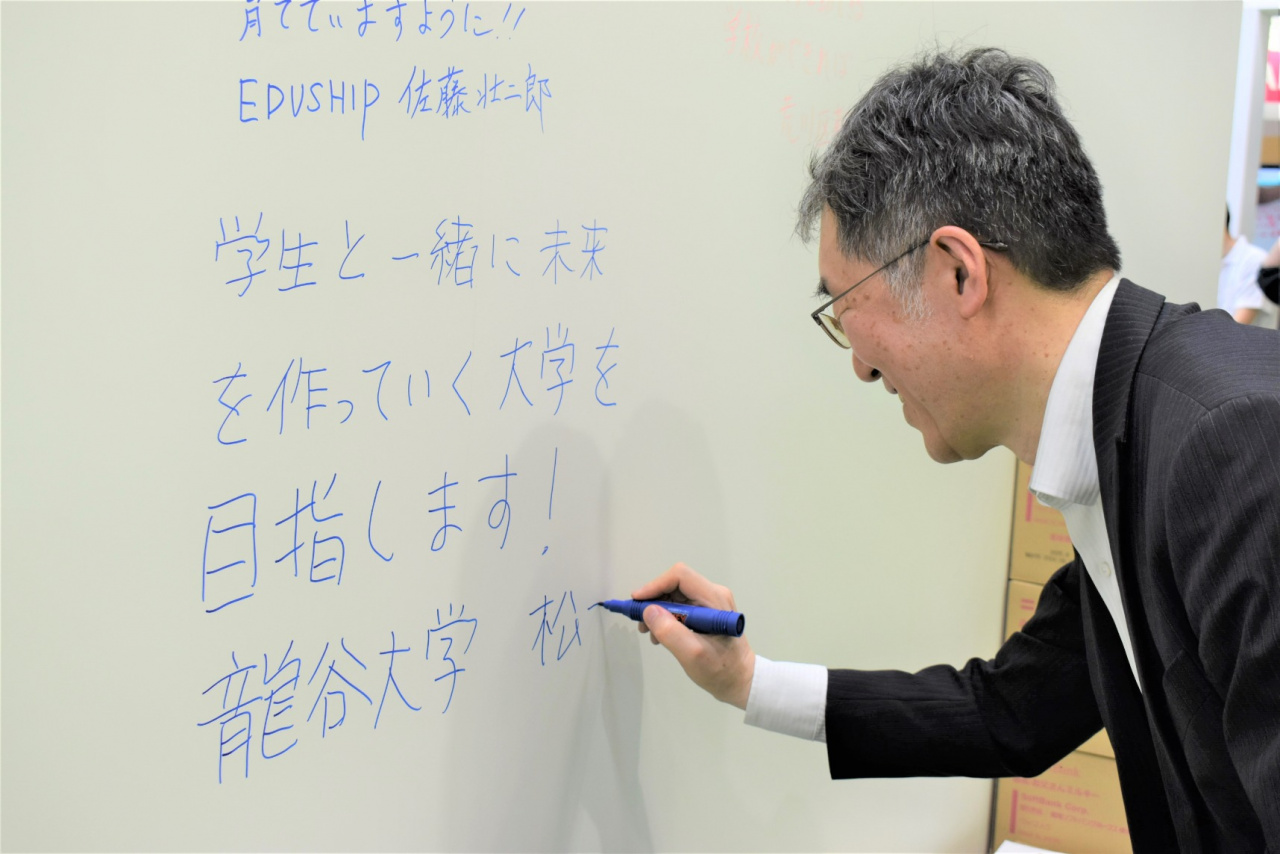 育てていますように!!
EDUSHIP 佐藤壮二郎
学生と一緒に未来
を作っていく大学を
目指します!
龍谷大学 松
SoftBank Corp.